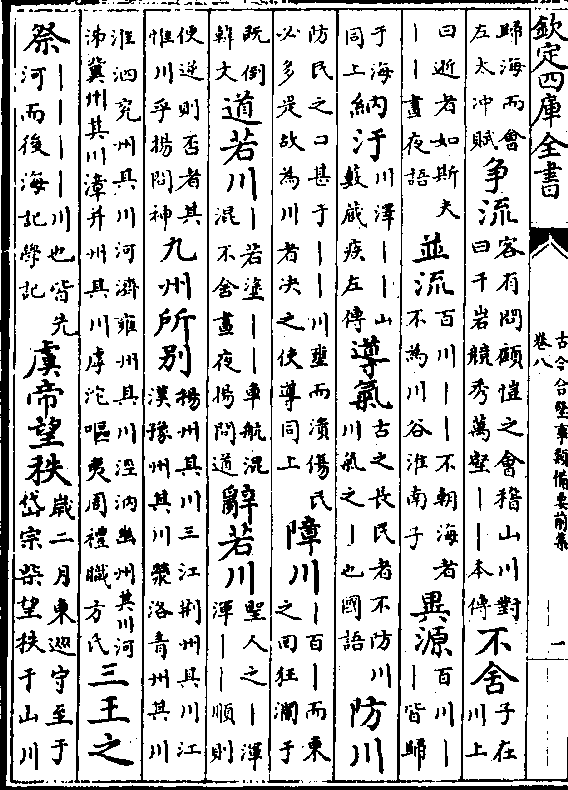 欽定四庫全書
古今合璧事類備要前集
卷八
一
歸海而會左太冲賦争流客有問顧愷之會稽山川對曰千岩競秀萬壑||本傳不舍子在川上
曰逝者如斯夫||晝夜語並流百川||不朝海者不為川谷淮南子異源百川||皆歸
于海同上納汙川澤||山藪藏疾左傳導氣古之長民者不防川川氣之|也國語防川
防民之口甚于||川壅而潰傷民必多是故為川者决之使導同上障川|百|而東之回狂瀾于
既倒韓文道若川|若塗||車航混混不舍晝夜揚問道辭若川聖人之|渾渾||順則
使逆則否者其惟川乎揚問神九州所别揚州其川三江荆州其川江漢豫州其川滎洛青州其川
淮泗兖州其川河濟雍州其川涇汭幽州其川河泲冀州其川漳并州其川虖沱嘔夷周禮職方氏三王之
祭||||川也皆先河而後海記學記虞帝望秩歲二月東廵守至于岱宗柴望秩于山川